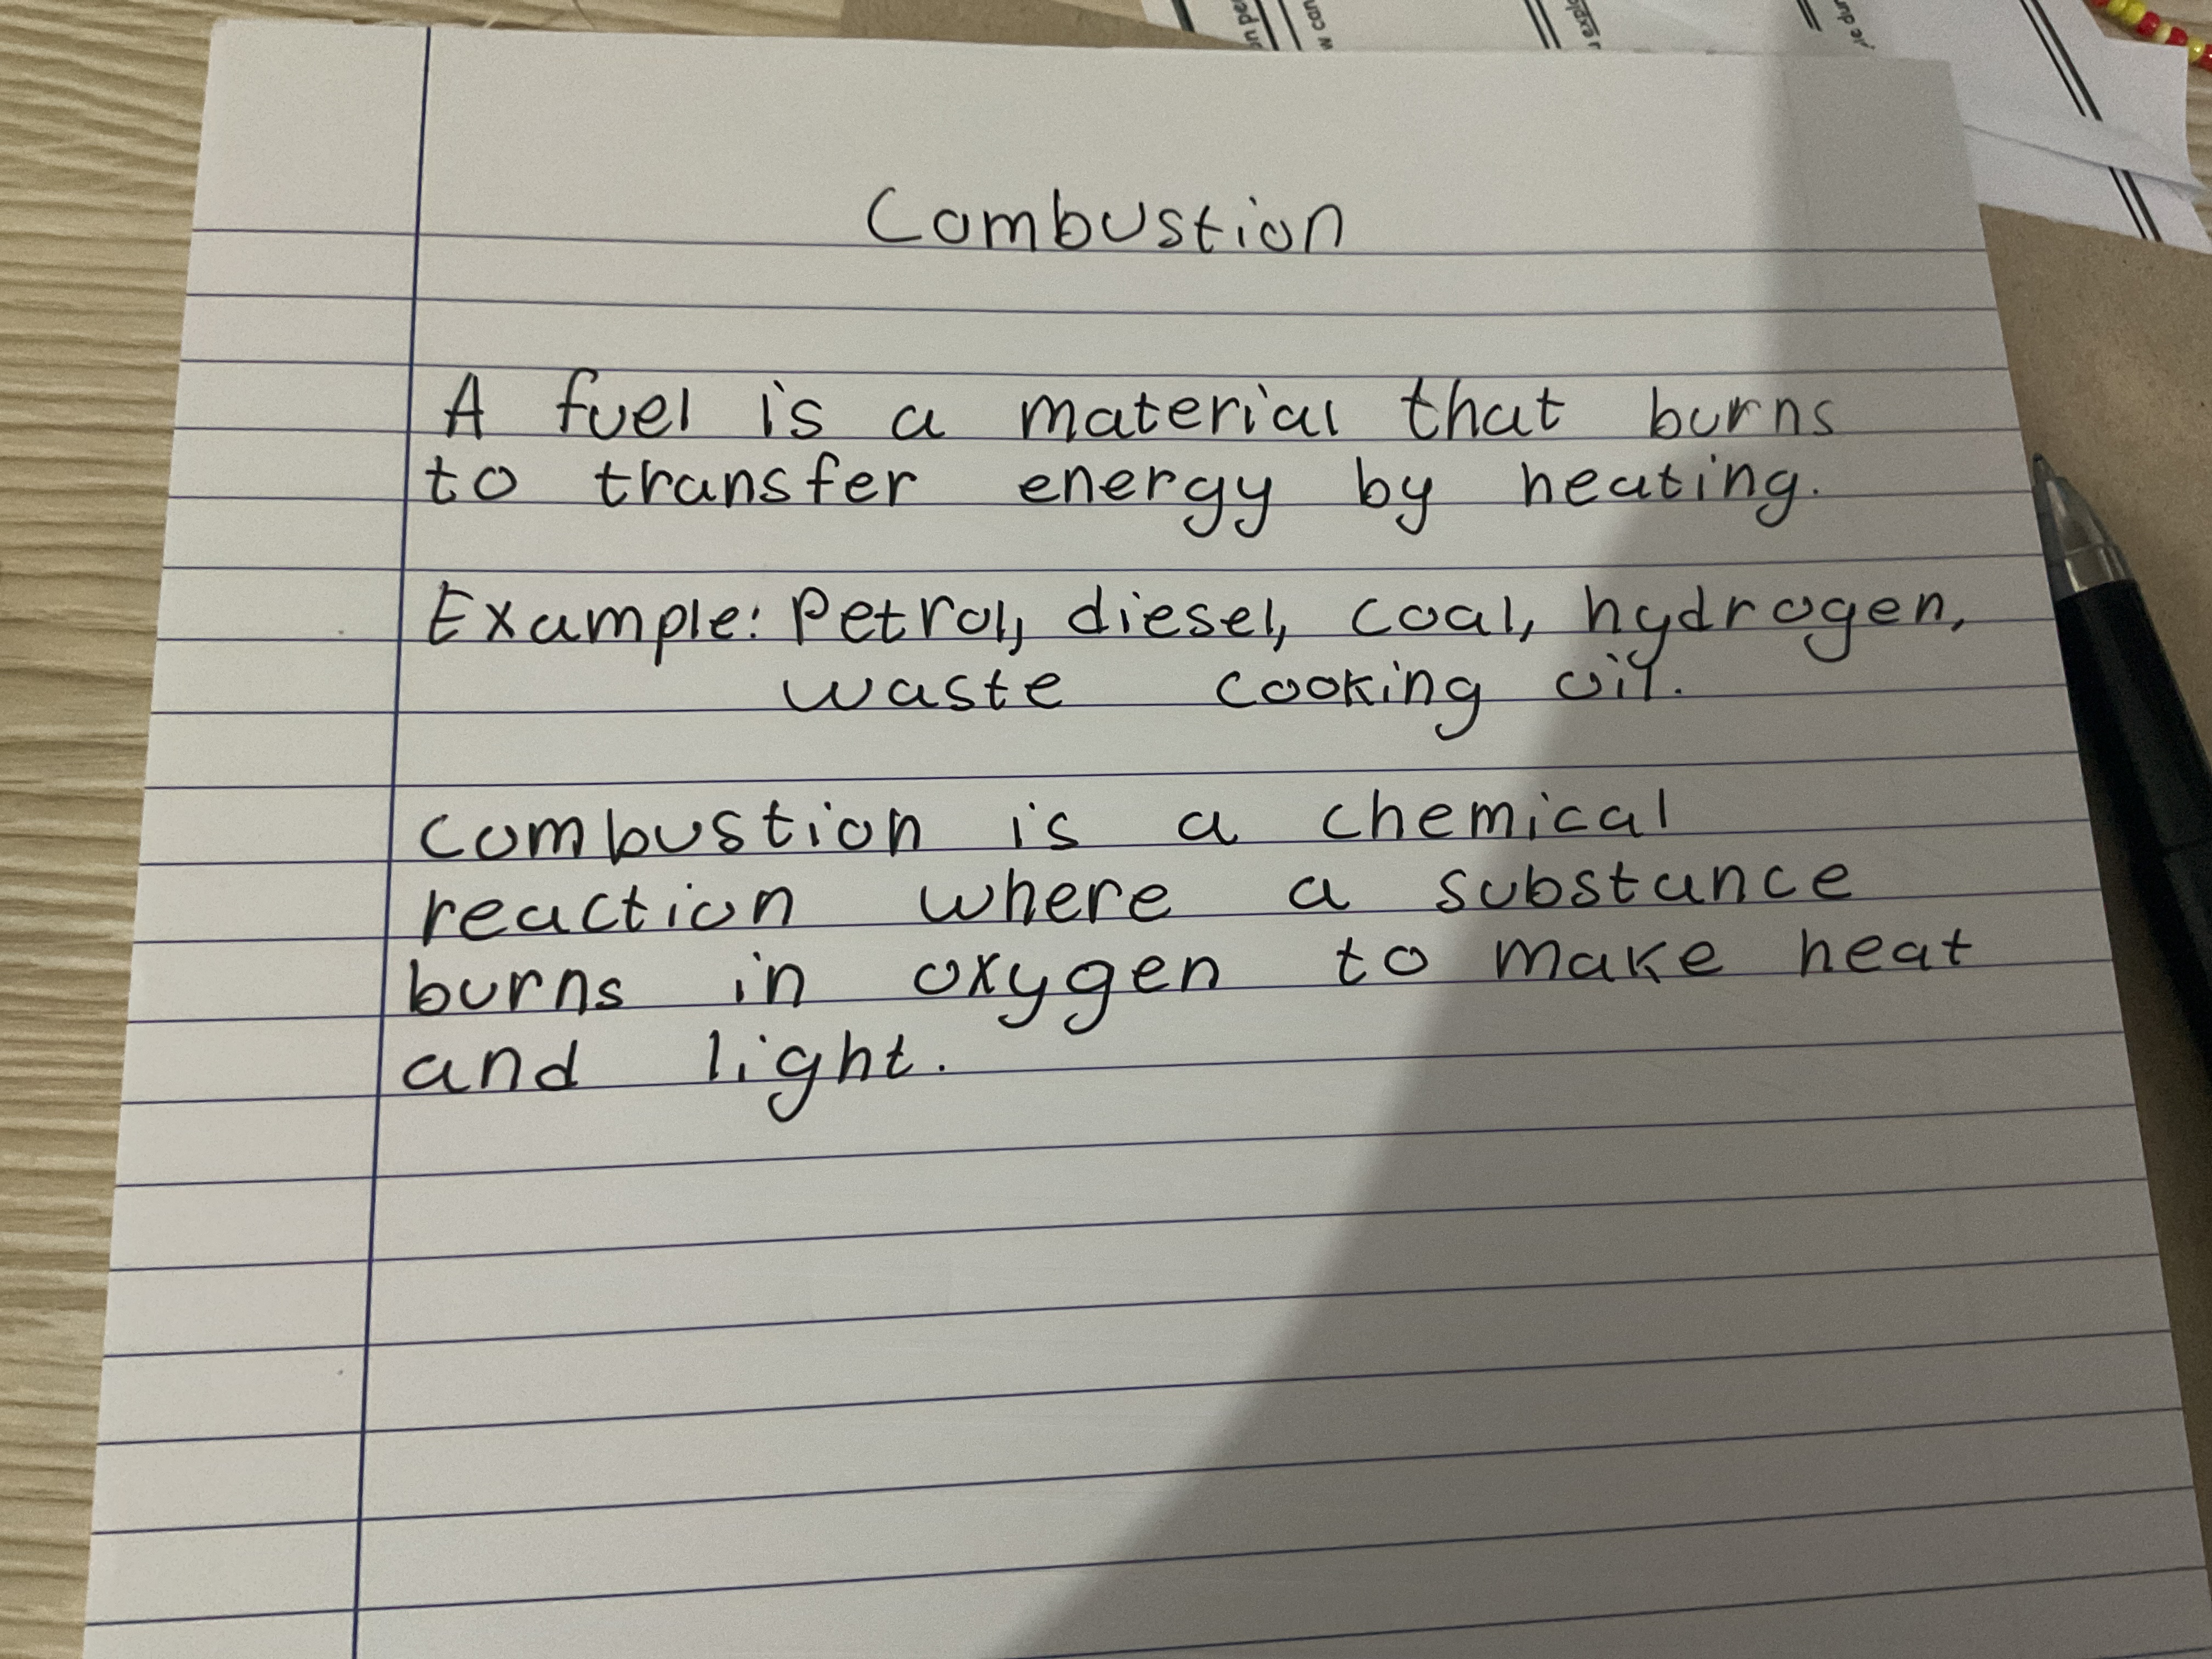 Combustion
A fuel is a material that burns
to transfer energy by heating.
Example: Petrol, diesel, coal, hydrogen,
waste cooking oil.
combustion is a chemical
reaction where a substance
burns in oxygen to make heat
and light.